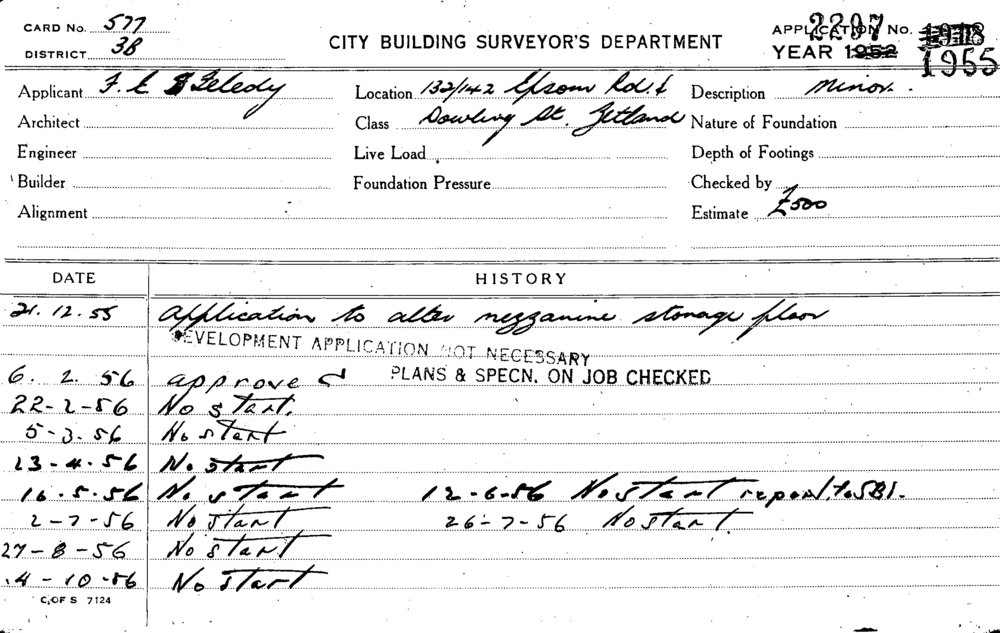 CARD No. 577
DISTRICT 3B
CITY BUILDING SURVEYOR'S DEPARTMENT
APPLICATION No. 2297
YEAR 1952 1955
Applicant F. E. Feledy
Location 132/142 Epsom Rd. &
Description Minor.
Architect
Class Dowling St. Zetland
Nature of Foundation
Engineer
Live Load
Depth of Footings
Builder
Foundation Pressure
Checked by
Alignment
Estimate £500
DATE HISTORY
21.12.55 Application to alter mezzanine storage floor
DEVELOPMENT APPLICATION NOT NECESSARY
6. 2. 56 approved PLANS & SPECN. ON JOB CHECKED
22-2-56 No start.
5-3.56 No start
13-4.56 No start
16.5.56 No start 12-6-56 No start report to SBI.
2-7-56 No start 26-7-56 No start.
27-8-56 No start
4-10-56 No start
C. OF S 7124